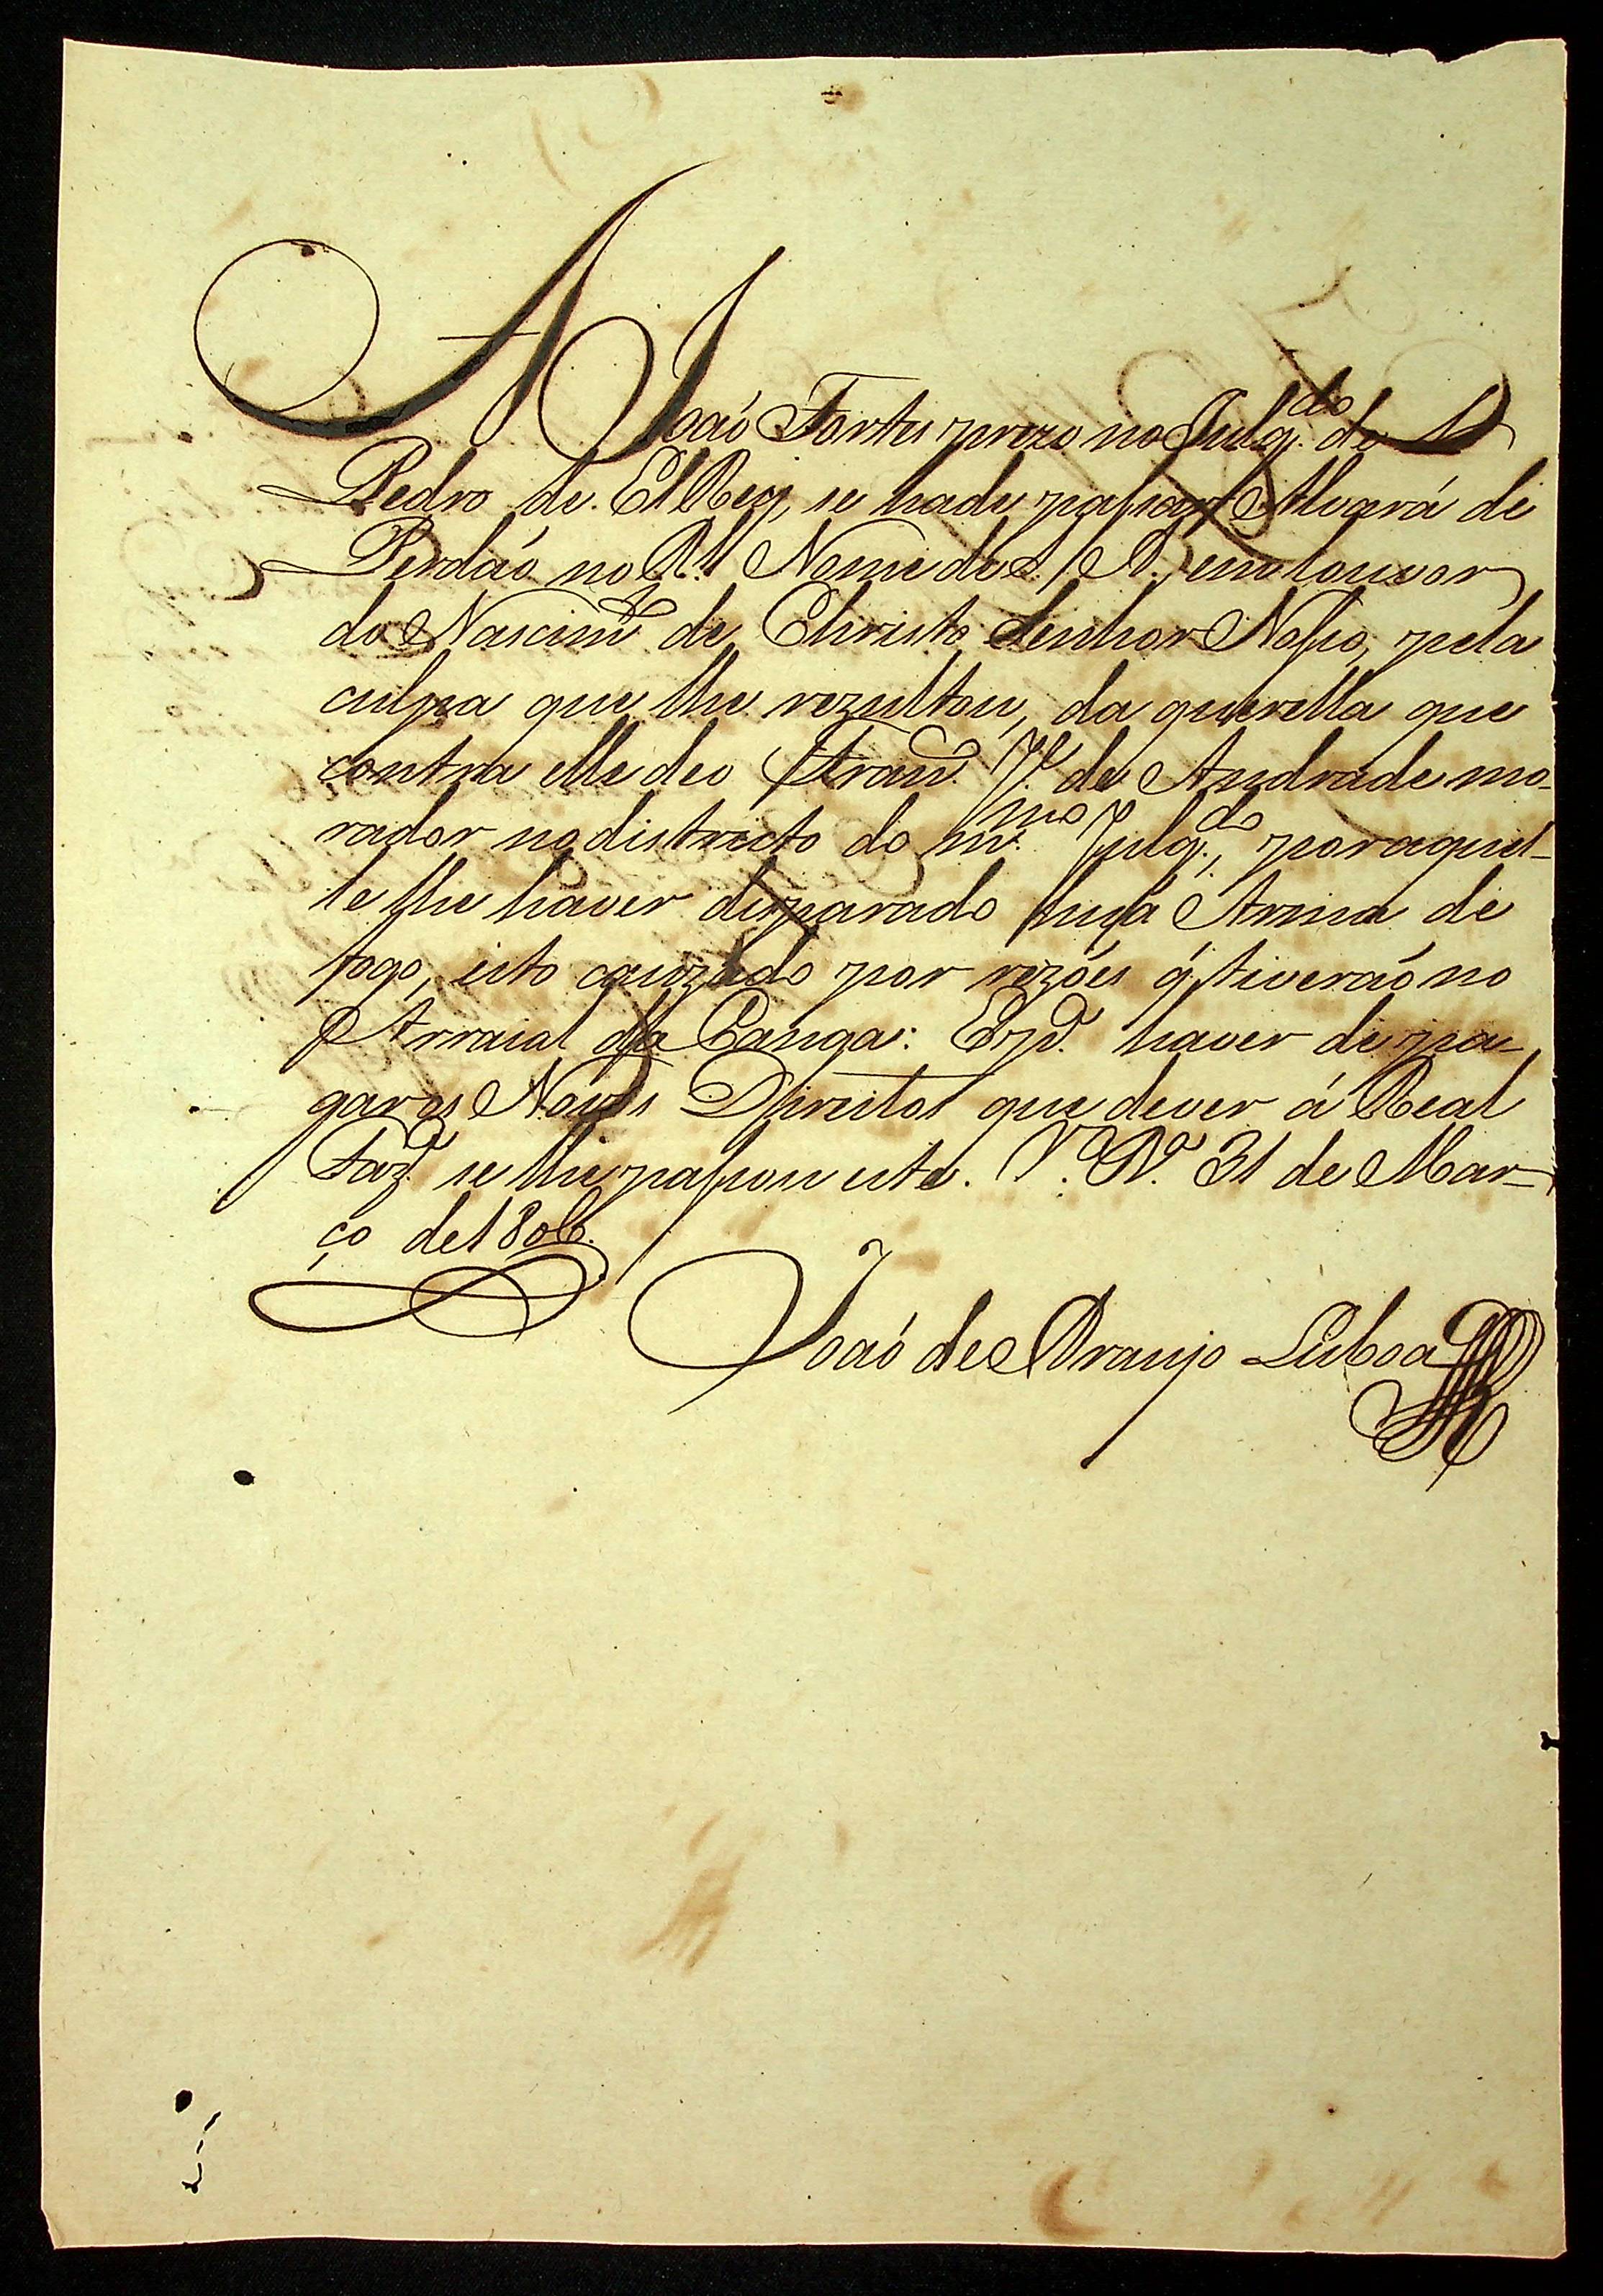 A João Fortes prezo no Julg.do de S.
Pedro de El Rey, se hade passar Alvará de
Perdão no R.l Nome de S. A. R. em louvor
do Nascim.to de Christo Senhor Nosso, pela
culpa que lhe rezultou, da querella que
contra elle deo Fran.co Je. de Andrade mo-
rador no districto do m.mo Julg.do, por aquel-
le lhe haver disparado huã Arma de
fogo, isto cauzado por rezões q' tiverão no
Arraial da Canga: E p.a haver de pa-
gar os Novos Direitos que dever á Real
Faz.da se lhe passou este. V.a B.a 31 de Mar-
ço de 1806.
João de Araujo Lisboa